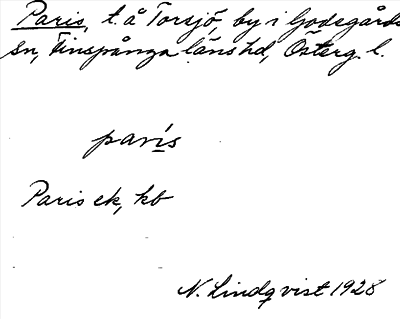 Paris, t. å Torsjö, by i Godegårds
sn, Finspånga läns hd, Österg. l.
parís
Paris ek, kb
N. Lindqvist 1928